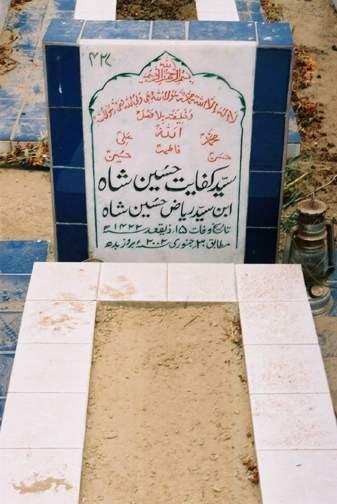 ۴۲
بسم الله الرحمن الرحيم
لا اله الا الله محمد رسول الله علی ولی الله وصی رسول الله
وخلیفته بلا فصل
محمد الله علی
حسن فاطمه حسین
سید کفایت حسین شاہ
ابن سید ریاض حسین شاہ
تاریخ وفات ۱۵ ذیقعد ۱۴۲۲ھ
مطابق ۳۰ جنوری ۲۰۰۲ء بروز بدھ